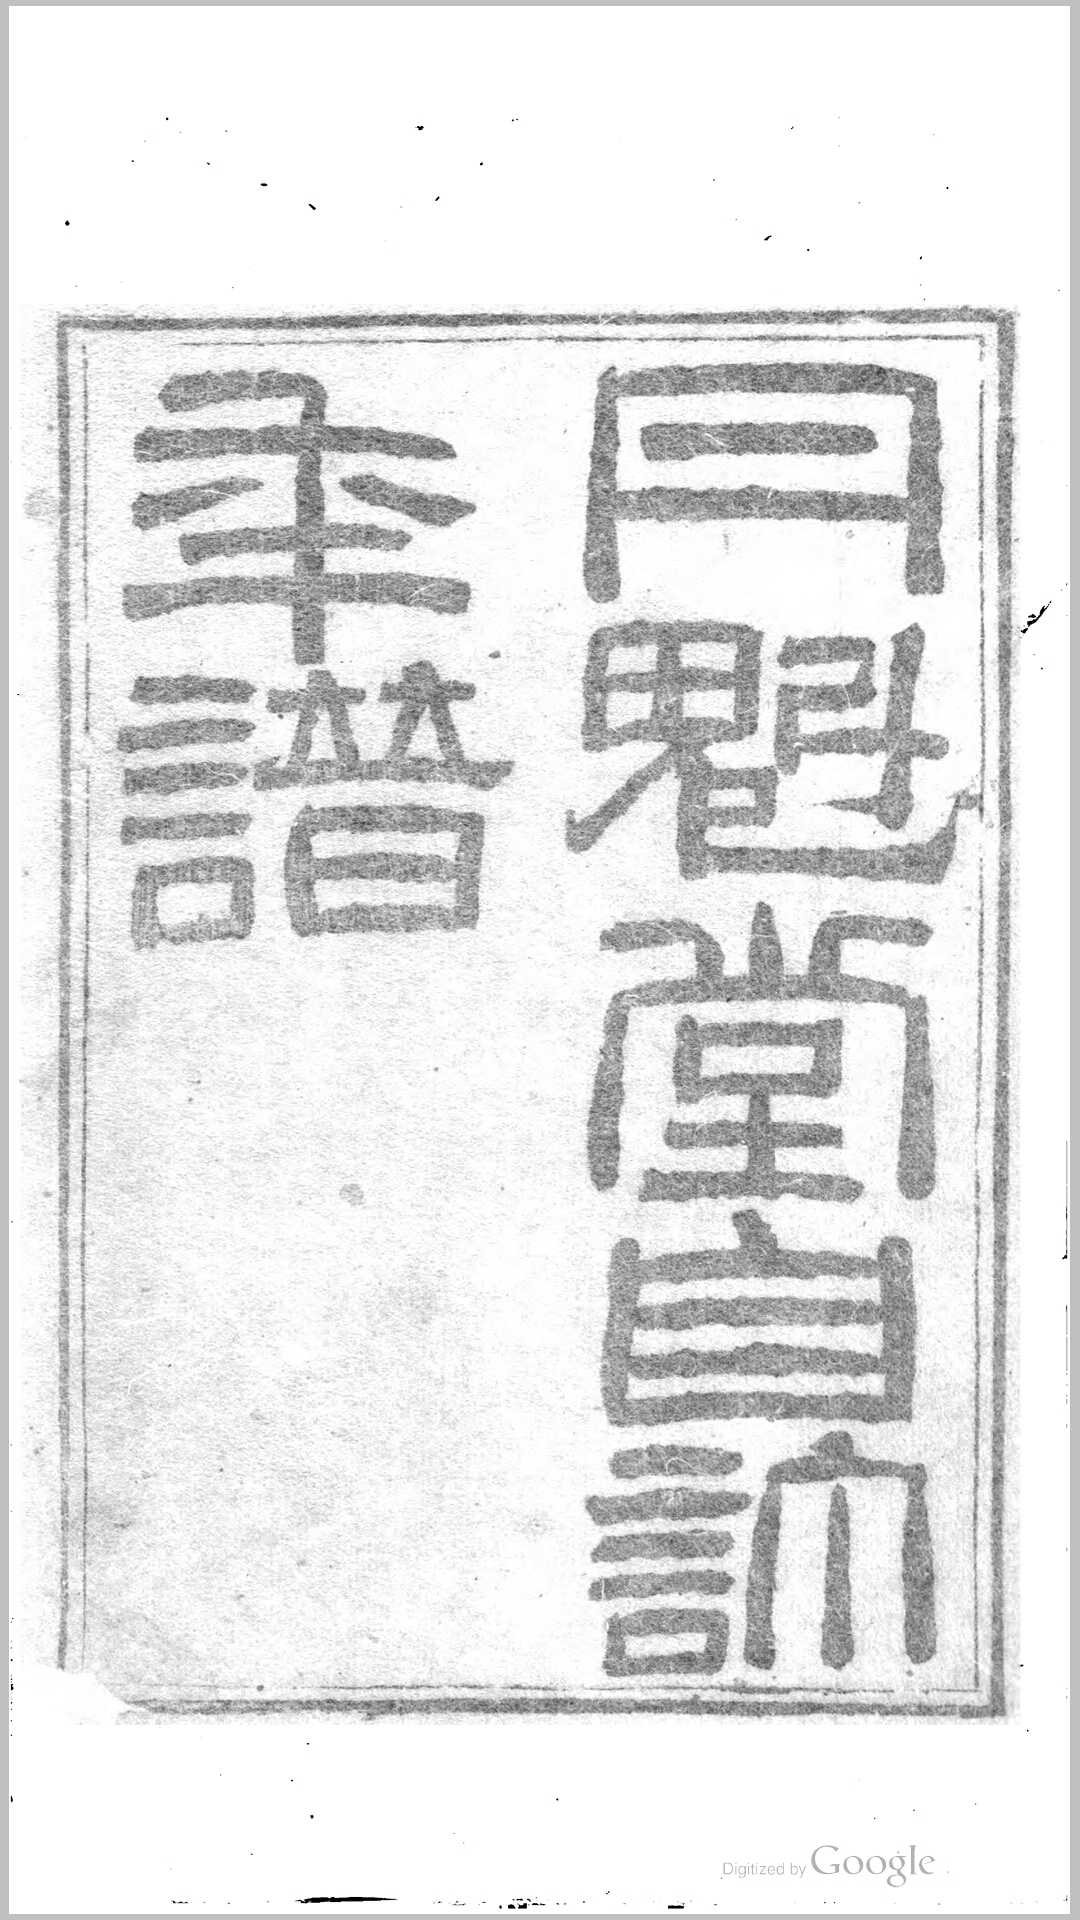 丹魁堂自訂
年譜
Digitized by Google